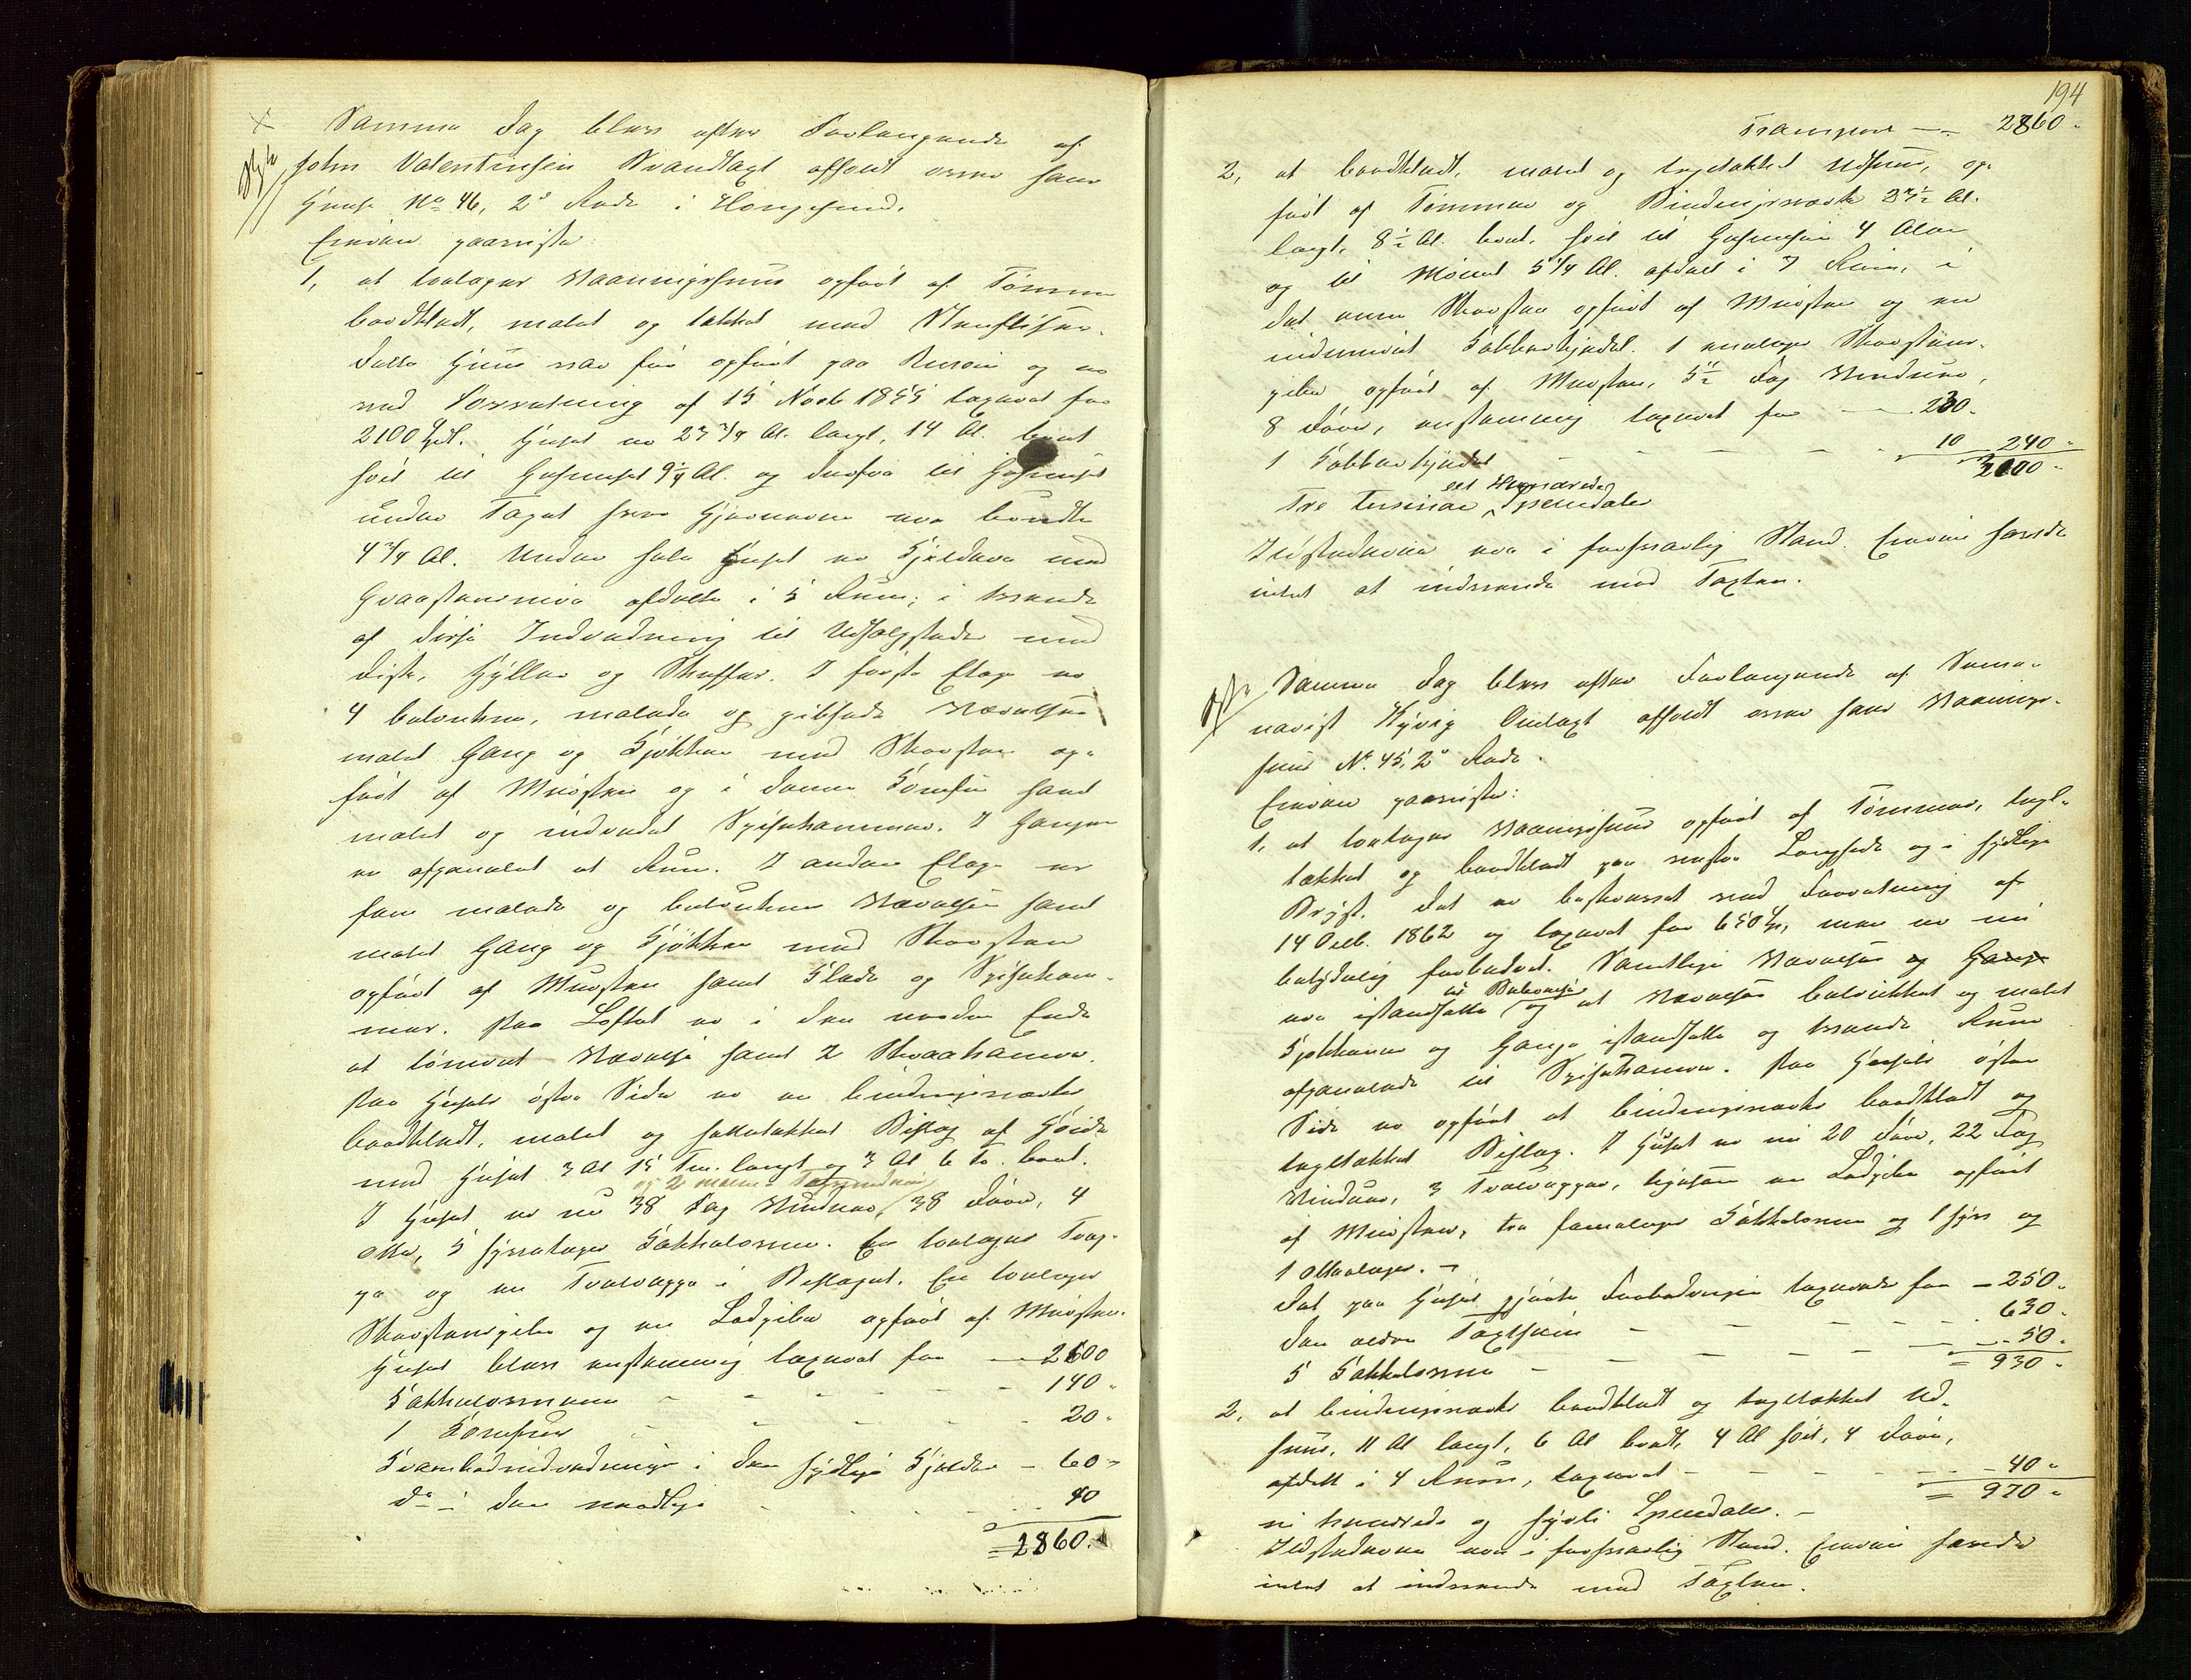 Samme Dag blev efter Forlangende af
John Valentinsen Brandtaxt afholdt over hans
Huus No 46, 2de Rode i Haugesund.
Eieren paaviste:
1, et toetages Vaaningshuus opført af Tømmer
bordklædt, malet og takket med Skiffersteen.
Dette Huus var før opført paa Rusøen og er
ved Forretning af 15 Novb 1855 taxeret for
2100 Spd. Huset er 23 3/4 Al. langt, 14 Al. bredt
høit til Gesimset 9 1/4 Al. og derfra til Gesimset
under Taget hvor Hjørnerne ere brudte
4 3/4 Al. Under hele Huset er Kjeldere med
Graasteensmur afdelte i 5 Rum; i tvende
af disse Indredning til Udsalgssteder med
Diske, Hylder og Skuffer. I første Etage er
4 betrukne, malede og gibsede Værelser
malet Gang og Kjøkken med Skorsteen op-
ført af Muursteen og i denne Komfur samt
malet og indredet Spisekammer. I Gangen
er afpanelet et Rum. I anden Etage er
fem malede og betrukne Værelser samt
malet Gang og Kjøkken med Skorsteen
opført af Muursteen samt Klæde og Spisekam-
mer. Paa Loftet er i den nordre Ende
et tømret Værelse samt 2 Skraakamre.
Paa Husets østre Side er en bindingsværks
bordklædt, malet og helletakket Bislag af Høide
med Huset 3 Al 15 Tm. langt og 3 Al 6 Tm. bredt.
og 2 mindre Tagvinduer
I Huset er nu 38 Fag Vinduer, 38 Døre, 4
otte, 5 fyretages Kakkelovne. En toetages Trap-
pe og en Trætrappe i Bislaget. En toetages
Skorsteenspibe og en Ladpibe opført af Muursteen.
Huset blev enstemmig taxeret for — 2600
Kakkelovnene - - - - - 140 "
1 Komfur - - - - 20 "
Krambodindredninge i den sydlige Kjelder - 60 "
Do i den nordlige - - - 40
= 2860.
194
Transport — 2860 "
2, et bordklædt, malet og tegltakket Udhuus, op-
ført af Tømmer og Bindingsværk 23 1/2 Al.
langt, 8 1/2 Al. bred, høit til Gesimsen 4 Alen
og til Mønet 5 1/4 Al. afdelt i 7 Rum, i
det ene Skorsteen opført af Muursteen og en
indmuret Kobberkjedel. 1 enetages Skorsteens-
pibe opført af Muursteen, 5 1/2 Fag Vinduer,
8 Døre, enstemmig taxeret for — 230 "
1 Kobberkjedel - - - - 10 240 "
3100 "
Tre Tusinde et Hundrede Speciedaler
Ildstederne ere i forsvarlig Stand. Eieren havde
intet at indvende mod Taxten.
Samme Dag blev efter Forlangende af Væme-
navist Kyvig Omtaxt afholdt over hans Vaanings-
huus No. 45, 2de Rode.
Eieren paaviste:
1, et toetages Vaaningshuus opført af Tømmer, tegl-
takket og bordklædt paa vestre Langside og i sydlige
Bryst. Det er beskrevet ved Forretning af
14 Octb. 1862 og taxeret for 650 Spd, men er nu
betydelig forbedret. Samtlige Værelser og Gange
ere istandsatte og et Værelse betrukket og malet
Kjøkkenet og Gange istandsatte og tvende Rum
afpanelede til Spisekamre. Paa Husets østre
Side er opført et bindingsværks bordklædt og
tegltakket Bislag. I Huset er nu 20 Døre, 22 Fag
Vinduer, 3 Trætrapper, ligesom en Ladpibe opført
af Muursteen, tre femetages Kakkelovne og 1 fyr og
1 otteetages. -
Det paa Huset gjorte Forbedringer taxerede for — 250 "
Den ældre Taxtsum - - - - 630 "
5 Kakkelovne - - - - - 50 "
= 930 "
2, et bindingsværks bordklædt og tegltakket Ud-
huus, 11 Al langt, 6 Al bredt, 4 Al høit, 4 Døre,
afdelt i 4 Rum, taxeret - - - - 40 "
= 970 "
ni hundrede og sytti Speciedaler. -
Ildstederne ere i forsvarlig Stand. Eieren havde
intet at indvende mod Taxten.